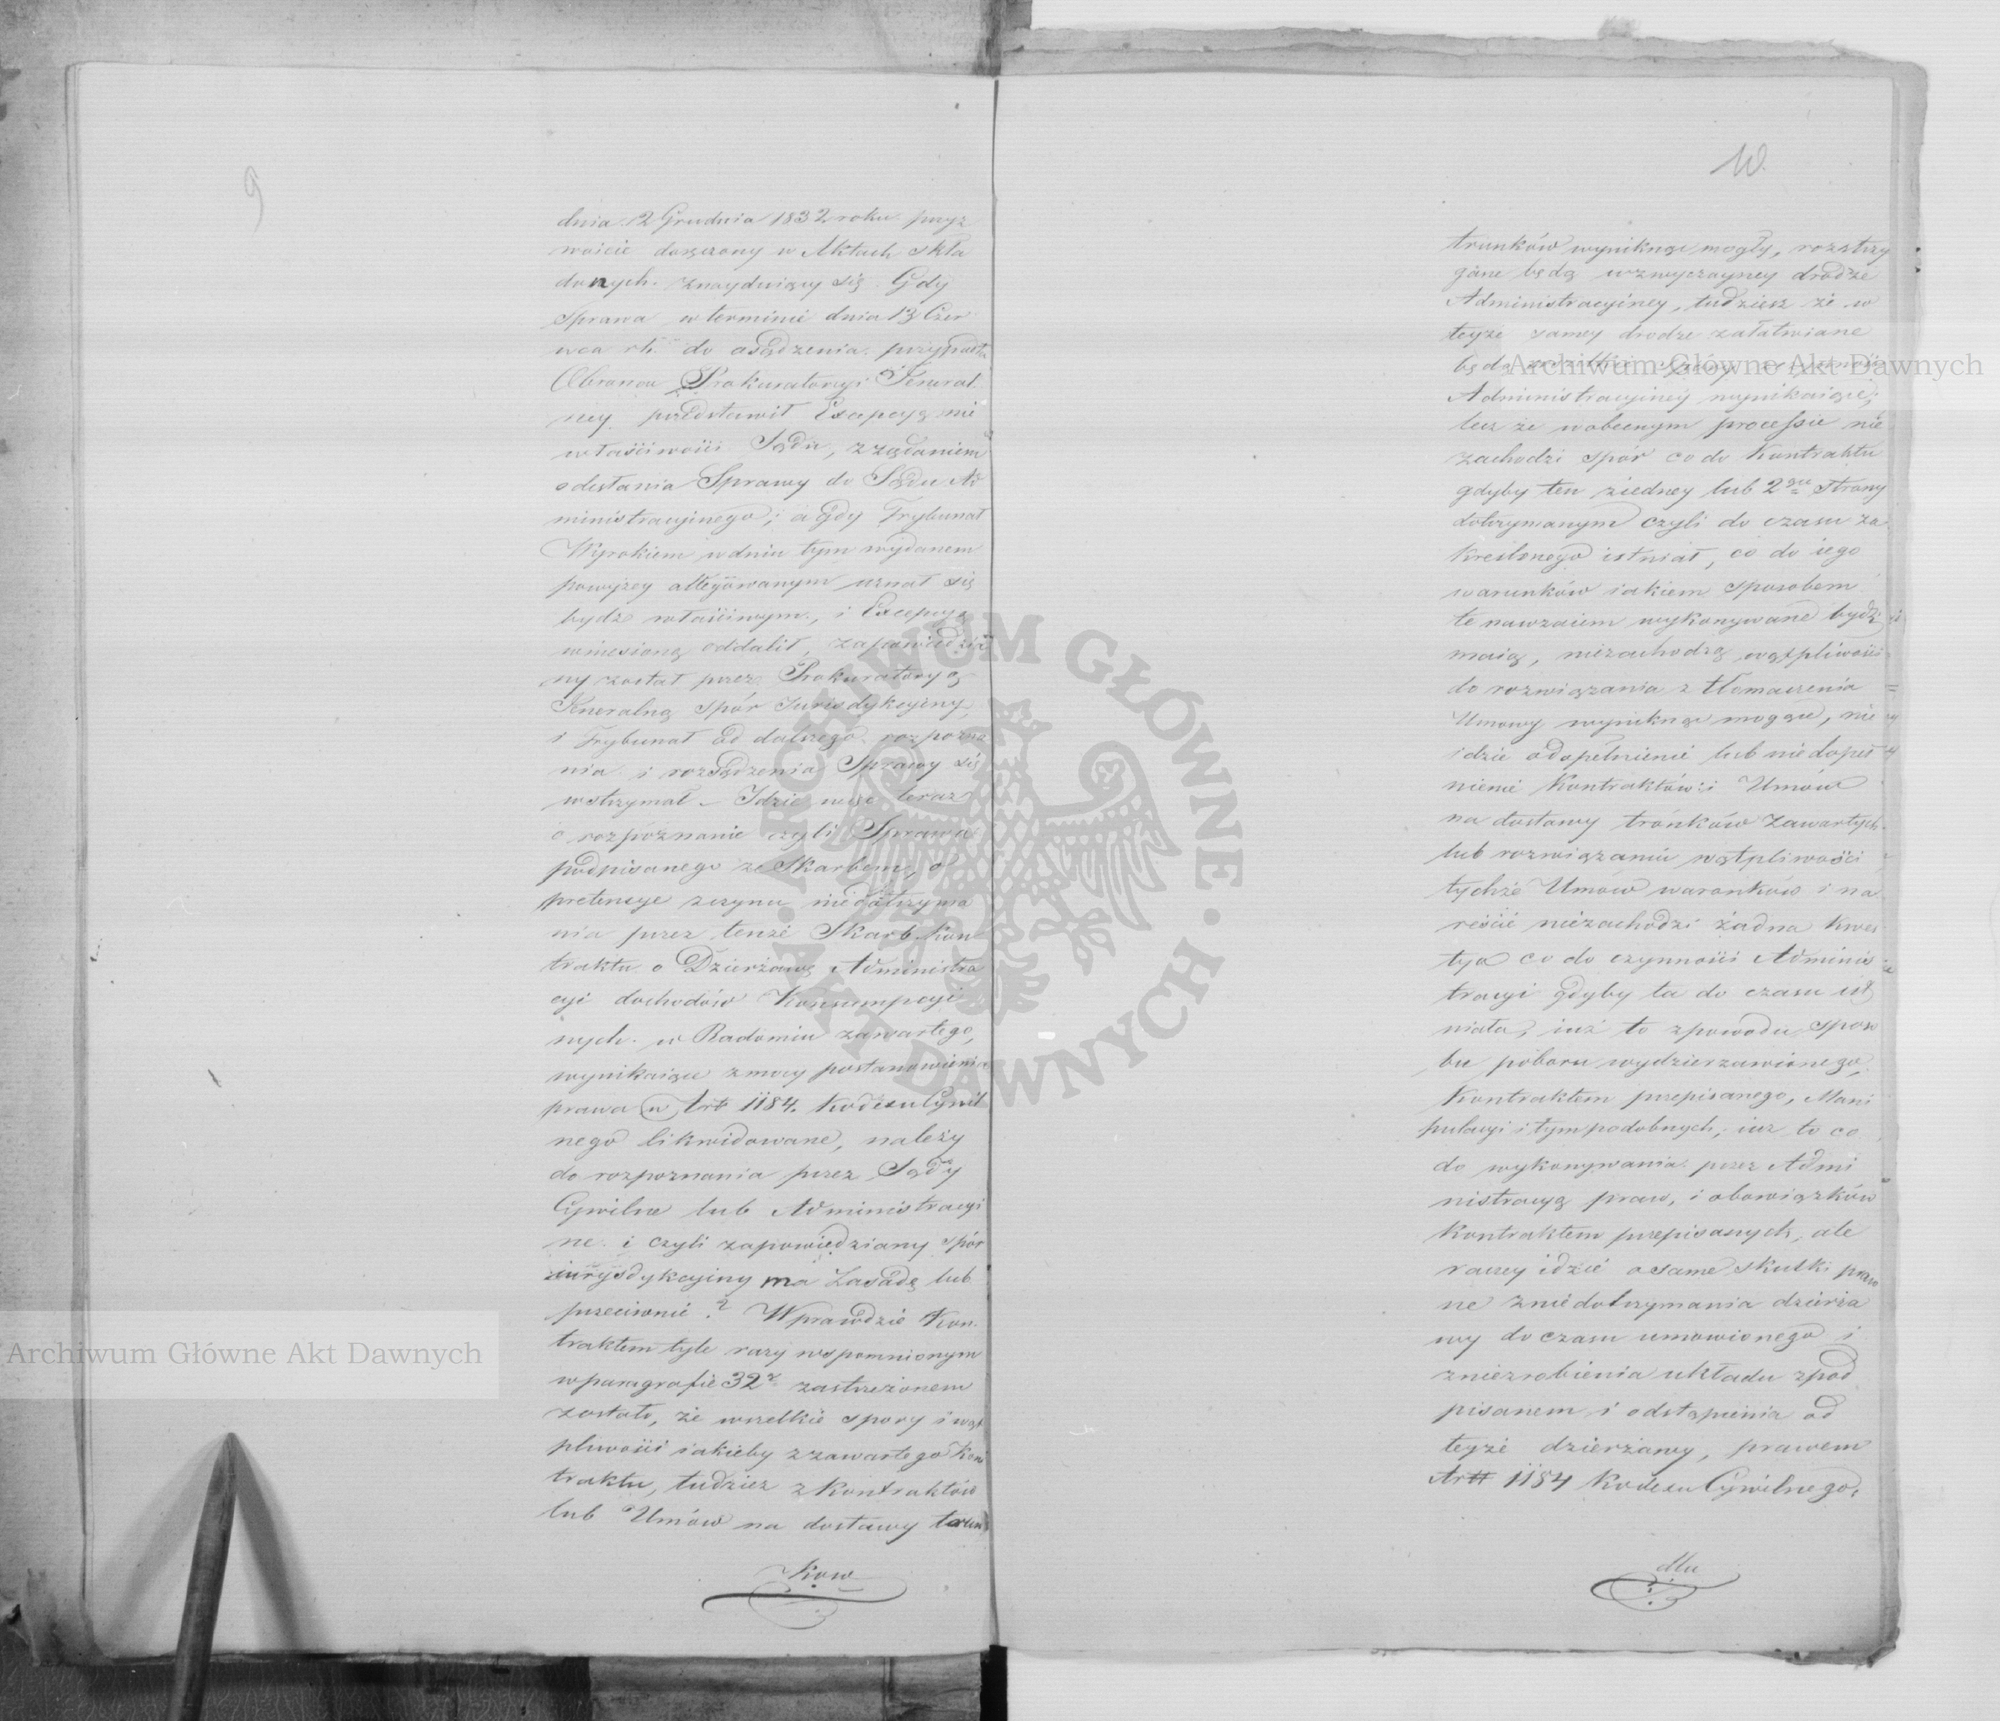 9
dnia 12 Grudnia 1832 roku przyz
woicie doręczony w Aktach skła
danych znayduiący się. Gdy
Sprawa w terminie dnia 13 Czer
wca rb. do osądzenia przypadła
Obronca Prokuratoryi Jeneral
ney przedstawił Excepcyą nie
właściwości Sądu, z żądaniem
odesłania Sprawy do Sądu Ad
ministracyinego; a gdy Trybunał
Wyrokiem w dniu tym wydanem
powyżey allegowanym uznał się
bydź właściwym, i Excepcyą
wniesioną oddalił, zapowiedzia
ny został przez Prokuratoryą
Jeneralną spór Jurisdykcyiny,
i Trybunał od dalszego rozpozna
nia i rozsądzenia Sprawy się
wstrzymał. Idzie więc teraz
o rozpoznanie czyli Sprawa
podpisanego ze Skarbem, o
pretensye z czynu niedotrzyma
nia przez tenże Skarb Kon
traktu o Dzierżawę Administra
cyi dochodów Konsumpcyi
nych w Radomiu zawartego,
wynikaiące z mocy postanowienia
prawa w Art 1184. Kodexu Cywil
nego likwidowane, należy
do rozpoznania przez Sądy
Cywilne lub Administracyi
ne i czyli zapowiedziany spór
iurysdykcyiny ma Zasadę lub
przeciwnie? Wprawdzie Kon
traktem tyle razy wspomnionym
w paragrafie 32 zastrzeżonem
zostało, że wszelkie spory i wąt
pliwości iakieby z zawartego Kon
traktu, tudzież z Kontraktów
lub Umów na dostawy trun
ków
10.
trunków wyniknąć mogły, rozstrzy
gane będą w zwyczayney drodze
Administracyiney, tudzież że w
teyże samey drodze załatwiane
będą
Administracyiney wynikaiące;
lecz że w obecnym processie nie
zachodzi spór co do Kontraktu
gdyby ten z iedney lub 2giey strony
dotrzymanym czyli do czasu za
kreślonego istniał, co do iego
warunków iakiem sposobem
te nawzaiem wykonywane bydź
maią, niezachodzą wątpliwości
do rozwiązania z tłomaczenia
Umowy wyniknąć mogące, nie
idzie o dopełnienie lub niedopeł
nienie Kontraktów i Umów
na dostawy trónków zawartych
lub rozwiązaniu wątpliwości
tychże Umów warunków i na
reście niezachodzi żadna kwes
tya co do czynności Adminis
tracyi gdyby ta do czasu ist
niała, iuż to z powodu sposo
bu poboru wydzierżawionego,
Kontraktem przepisanego, Mani
pulacyi i tym podobnych; iuż to co
do wykonywania przez Admi
nistracyą praw, i obowiązków
Kontraktem przepisanych, ale
raczey idzie o same skutki praw
ne z niedotrzymania dzierża
wy do czasu umowionego i
z niezrobienia układu z pod
pisanem i odstąpienia od
teyże dzierżawy, prawem
Artt 1184 Kodexu Cywilnego,
dla
Archiwum Główne Akt Dawnych
Archiwum Główne Akt Dawnych
ARCHIWUM GŁÓWNE · AKT DAWNYCH ·